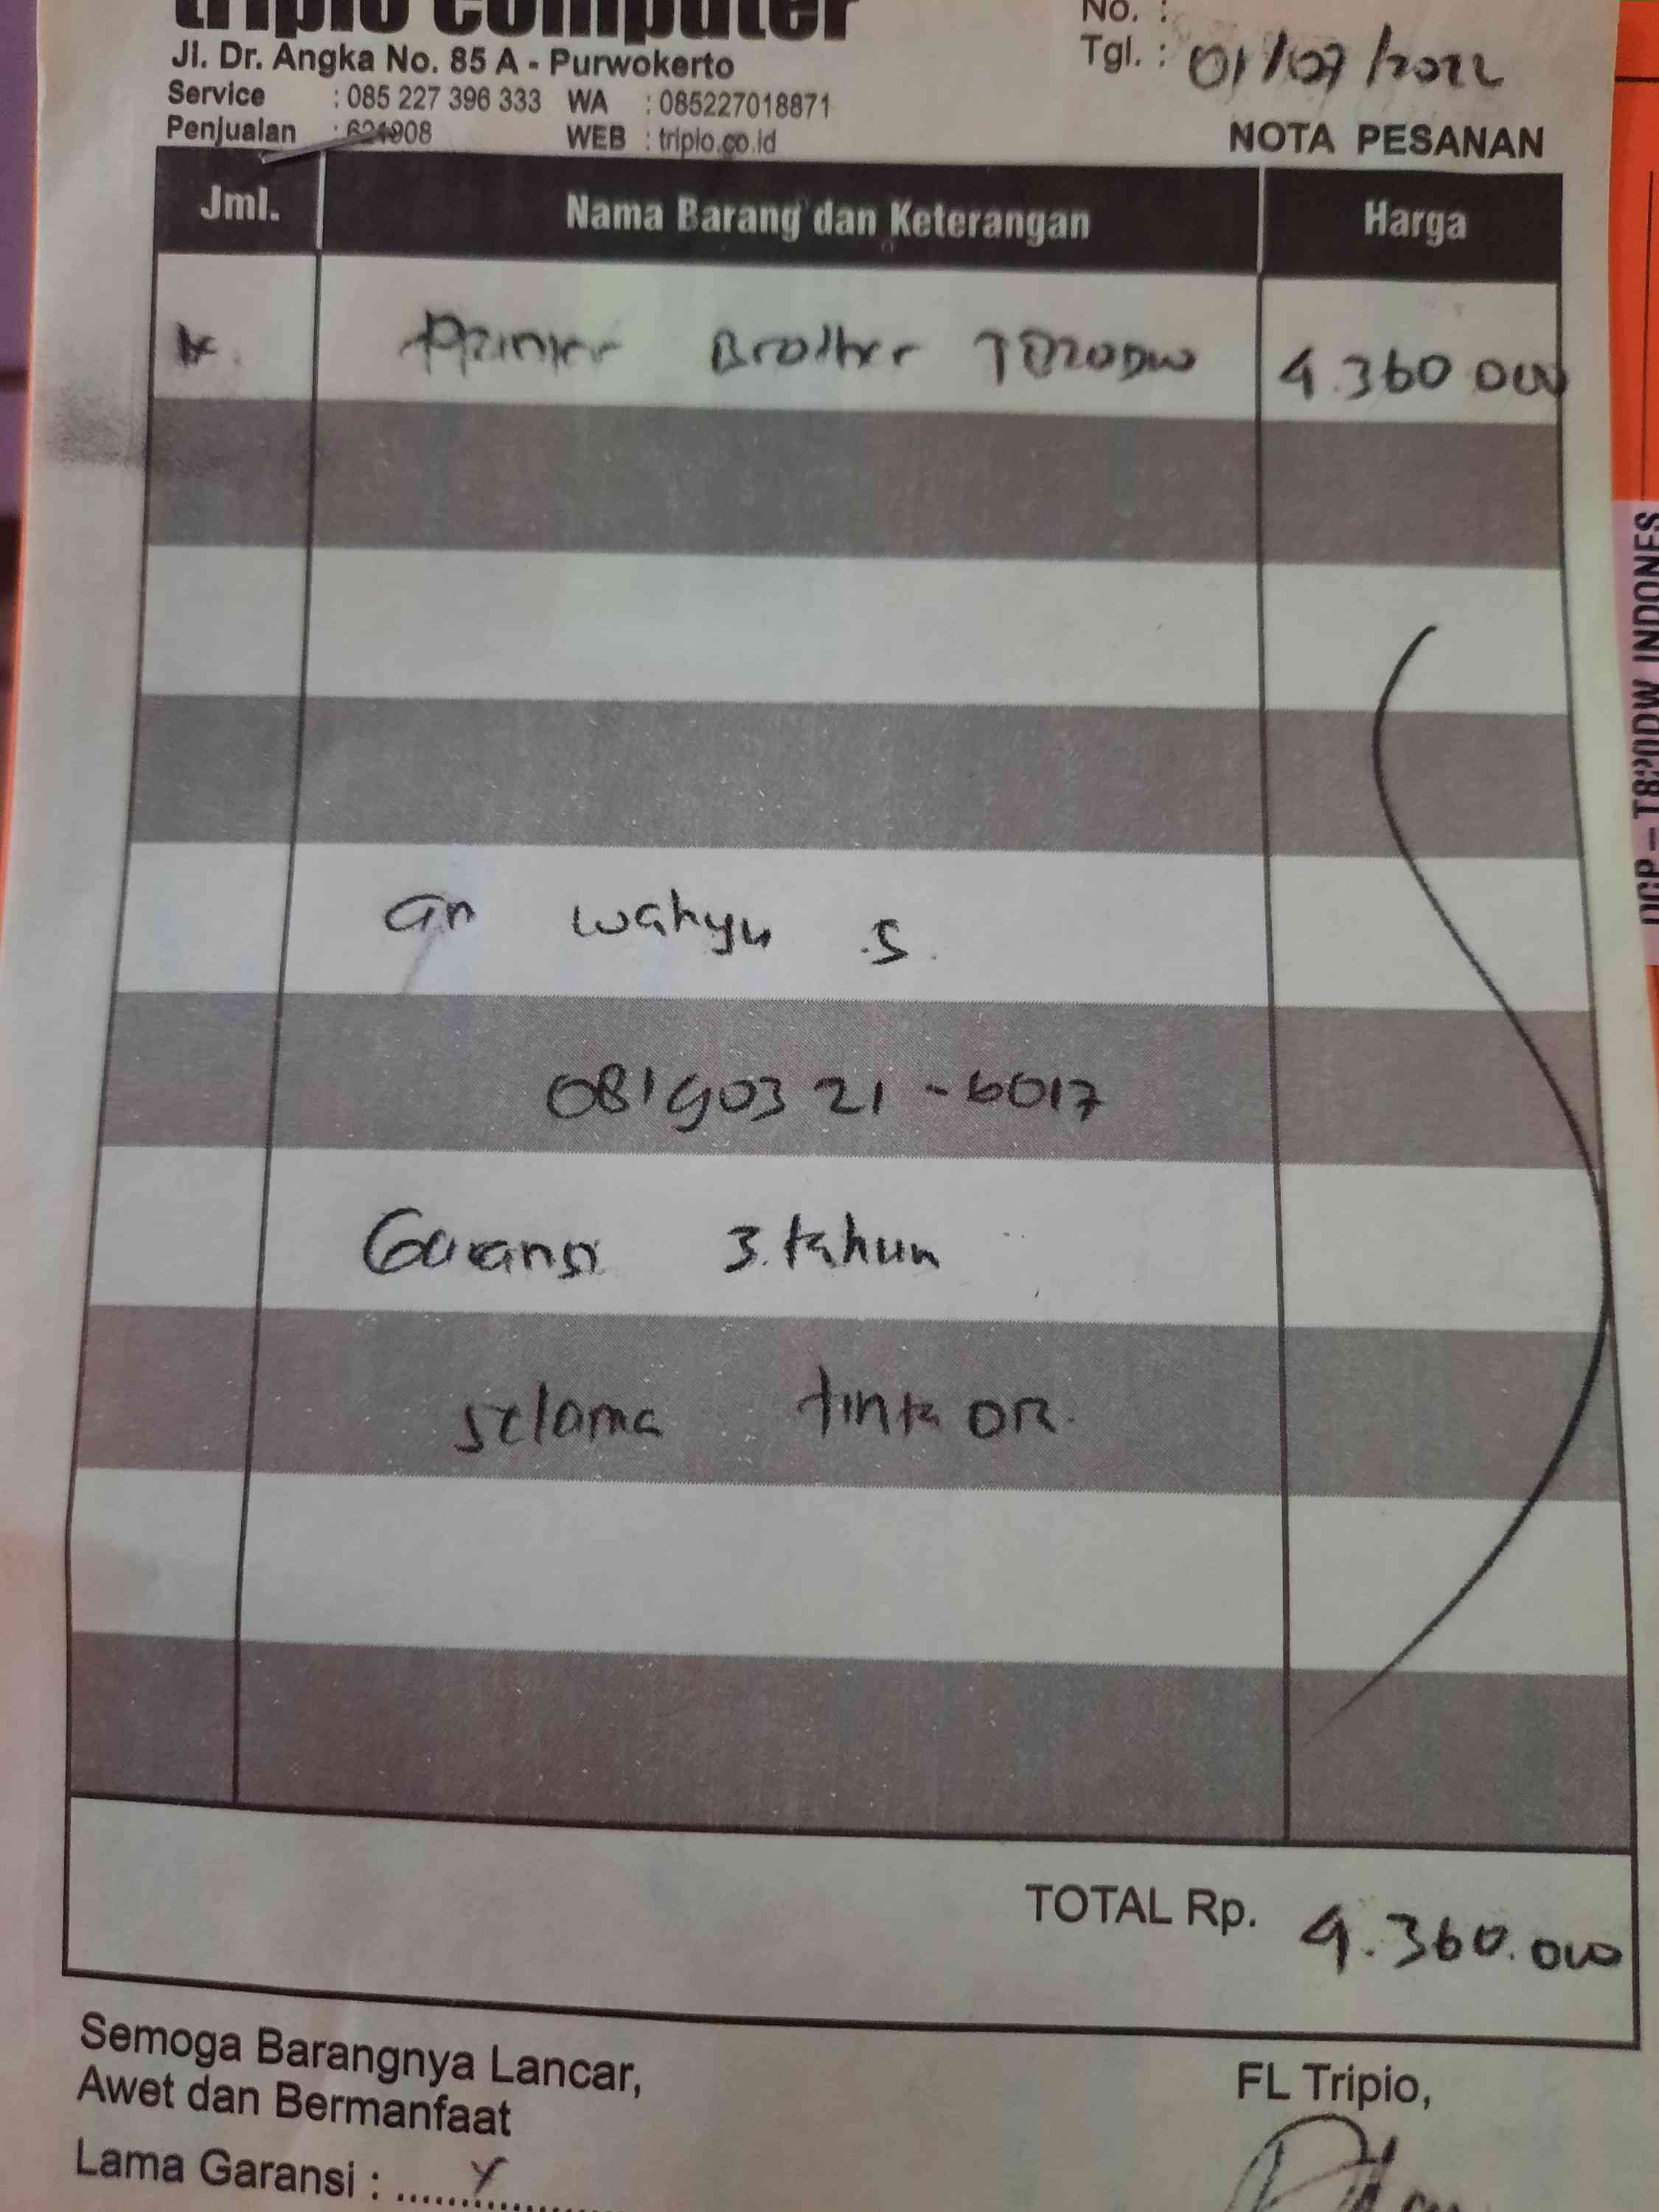 tripio computer
No. :
Jl. Dr. Angka No. 85 A - Purwokerto
Tgl. : 01/07/2022
Service : 085 227 396 333 WA : 085227018871
Penjualan : 621908 WEB : tripio.co.id
NOTA PESANAN
Jml. Nama Barang dan Keterangan Harga
1x. Printer Brother T820DW 4.360 000
an wahyu .S.
08190321-6017
Garansi 3.tahun
selama tinta OR.
TOTAL Rp. 4.360.000
Semoga Barangnya Lancar,
Awet dan Bermanfaat
FL Tripio,
Lama Garansi : ..............
DCP-T820DW INDONES